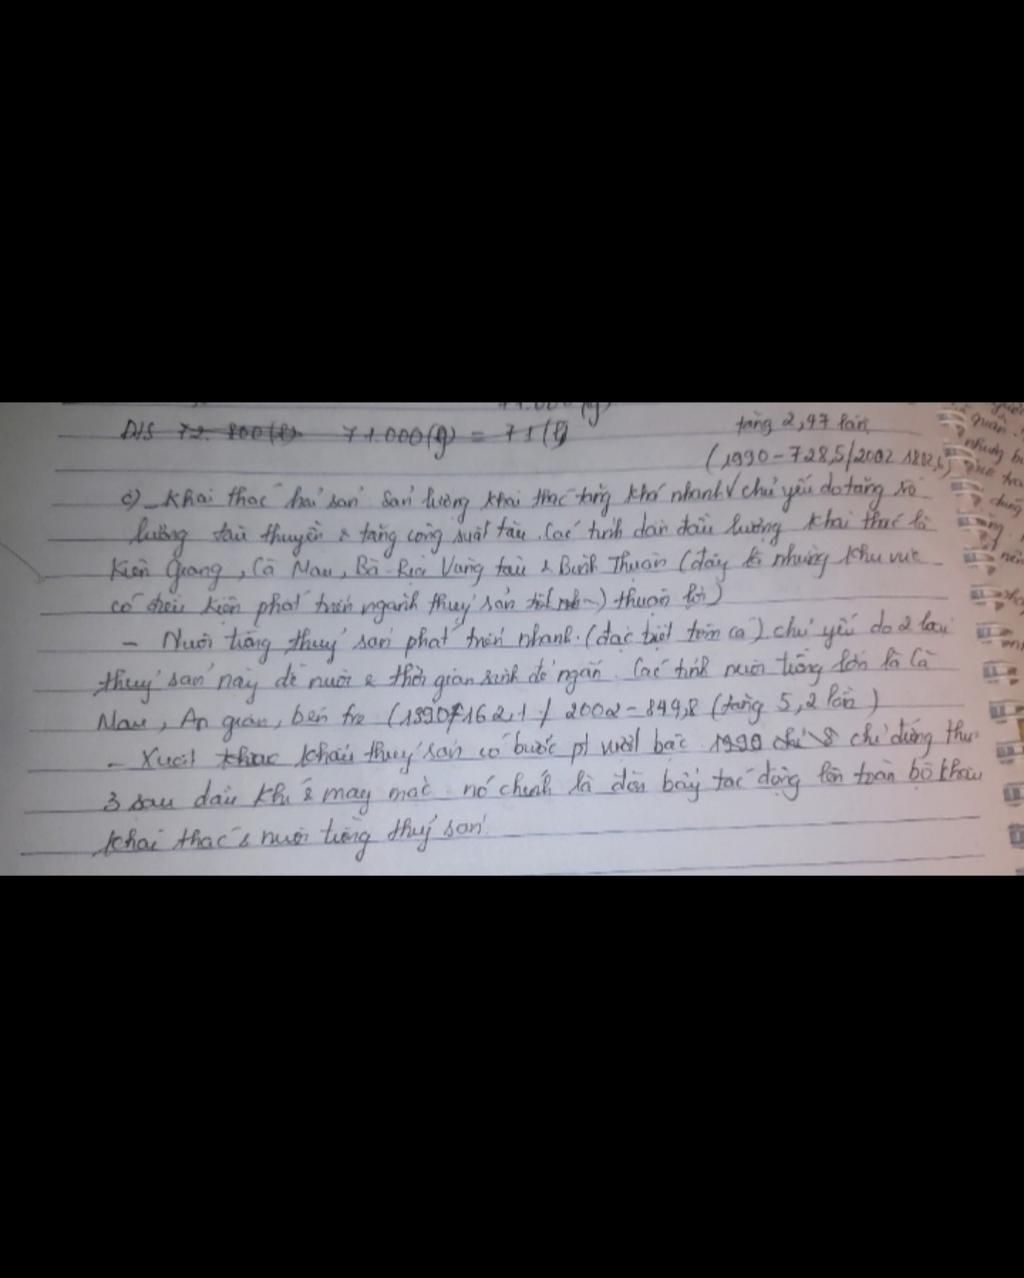 Đ/S 72.800(l) 71.000(g) = 71(l)
tăng 2,47 lần
(1990-728,5/2002 1802,6)
c) - Khai thác hải sản sản lượng khai thác tăng khá nhanh √ chủ yếu do tăng số
lượng tàu thuyền & tăng công suất tàu. Các tỉnh dẫn đầu lượng khai thác là
Kiên Giang, Cà Mau, Bà Rịa Vũng tàu & Bình Thuận (đây là những khu vực
có điều kiện phát triển ngành thuỷ sản thuận lợi)
- Nuôi trồng thuỷ sản phát triển nhanh. (đặc biệt tôm cá) chủ yếu do 2 loại
thuỷ sản này dễ nuôi & thời gian sinh đẻ ngắn. Các tỉnh nuôi trồng lớn là Cà
Mau, An giang, bến tre (1990/162,1/ 2002-844,8 (tăng 5,2 lần)
- Xuất khẩu thuỷ sản có bước pt vượt bậc. 1990 chỉ đứng thứ
3 sau dầu khí & may mặc. nó chính là đòn bẩy tác động lên toàn bộ khâu
khai thác & nuôi trồng thuỷ sản
quan
những